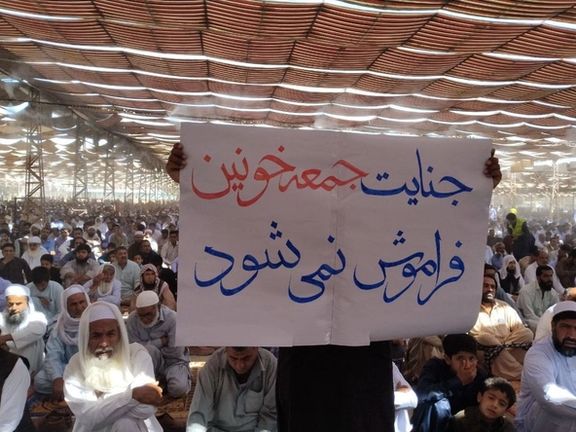 جنایت جمعه خونین
فراموش نمی شود